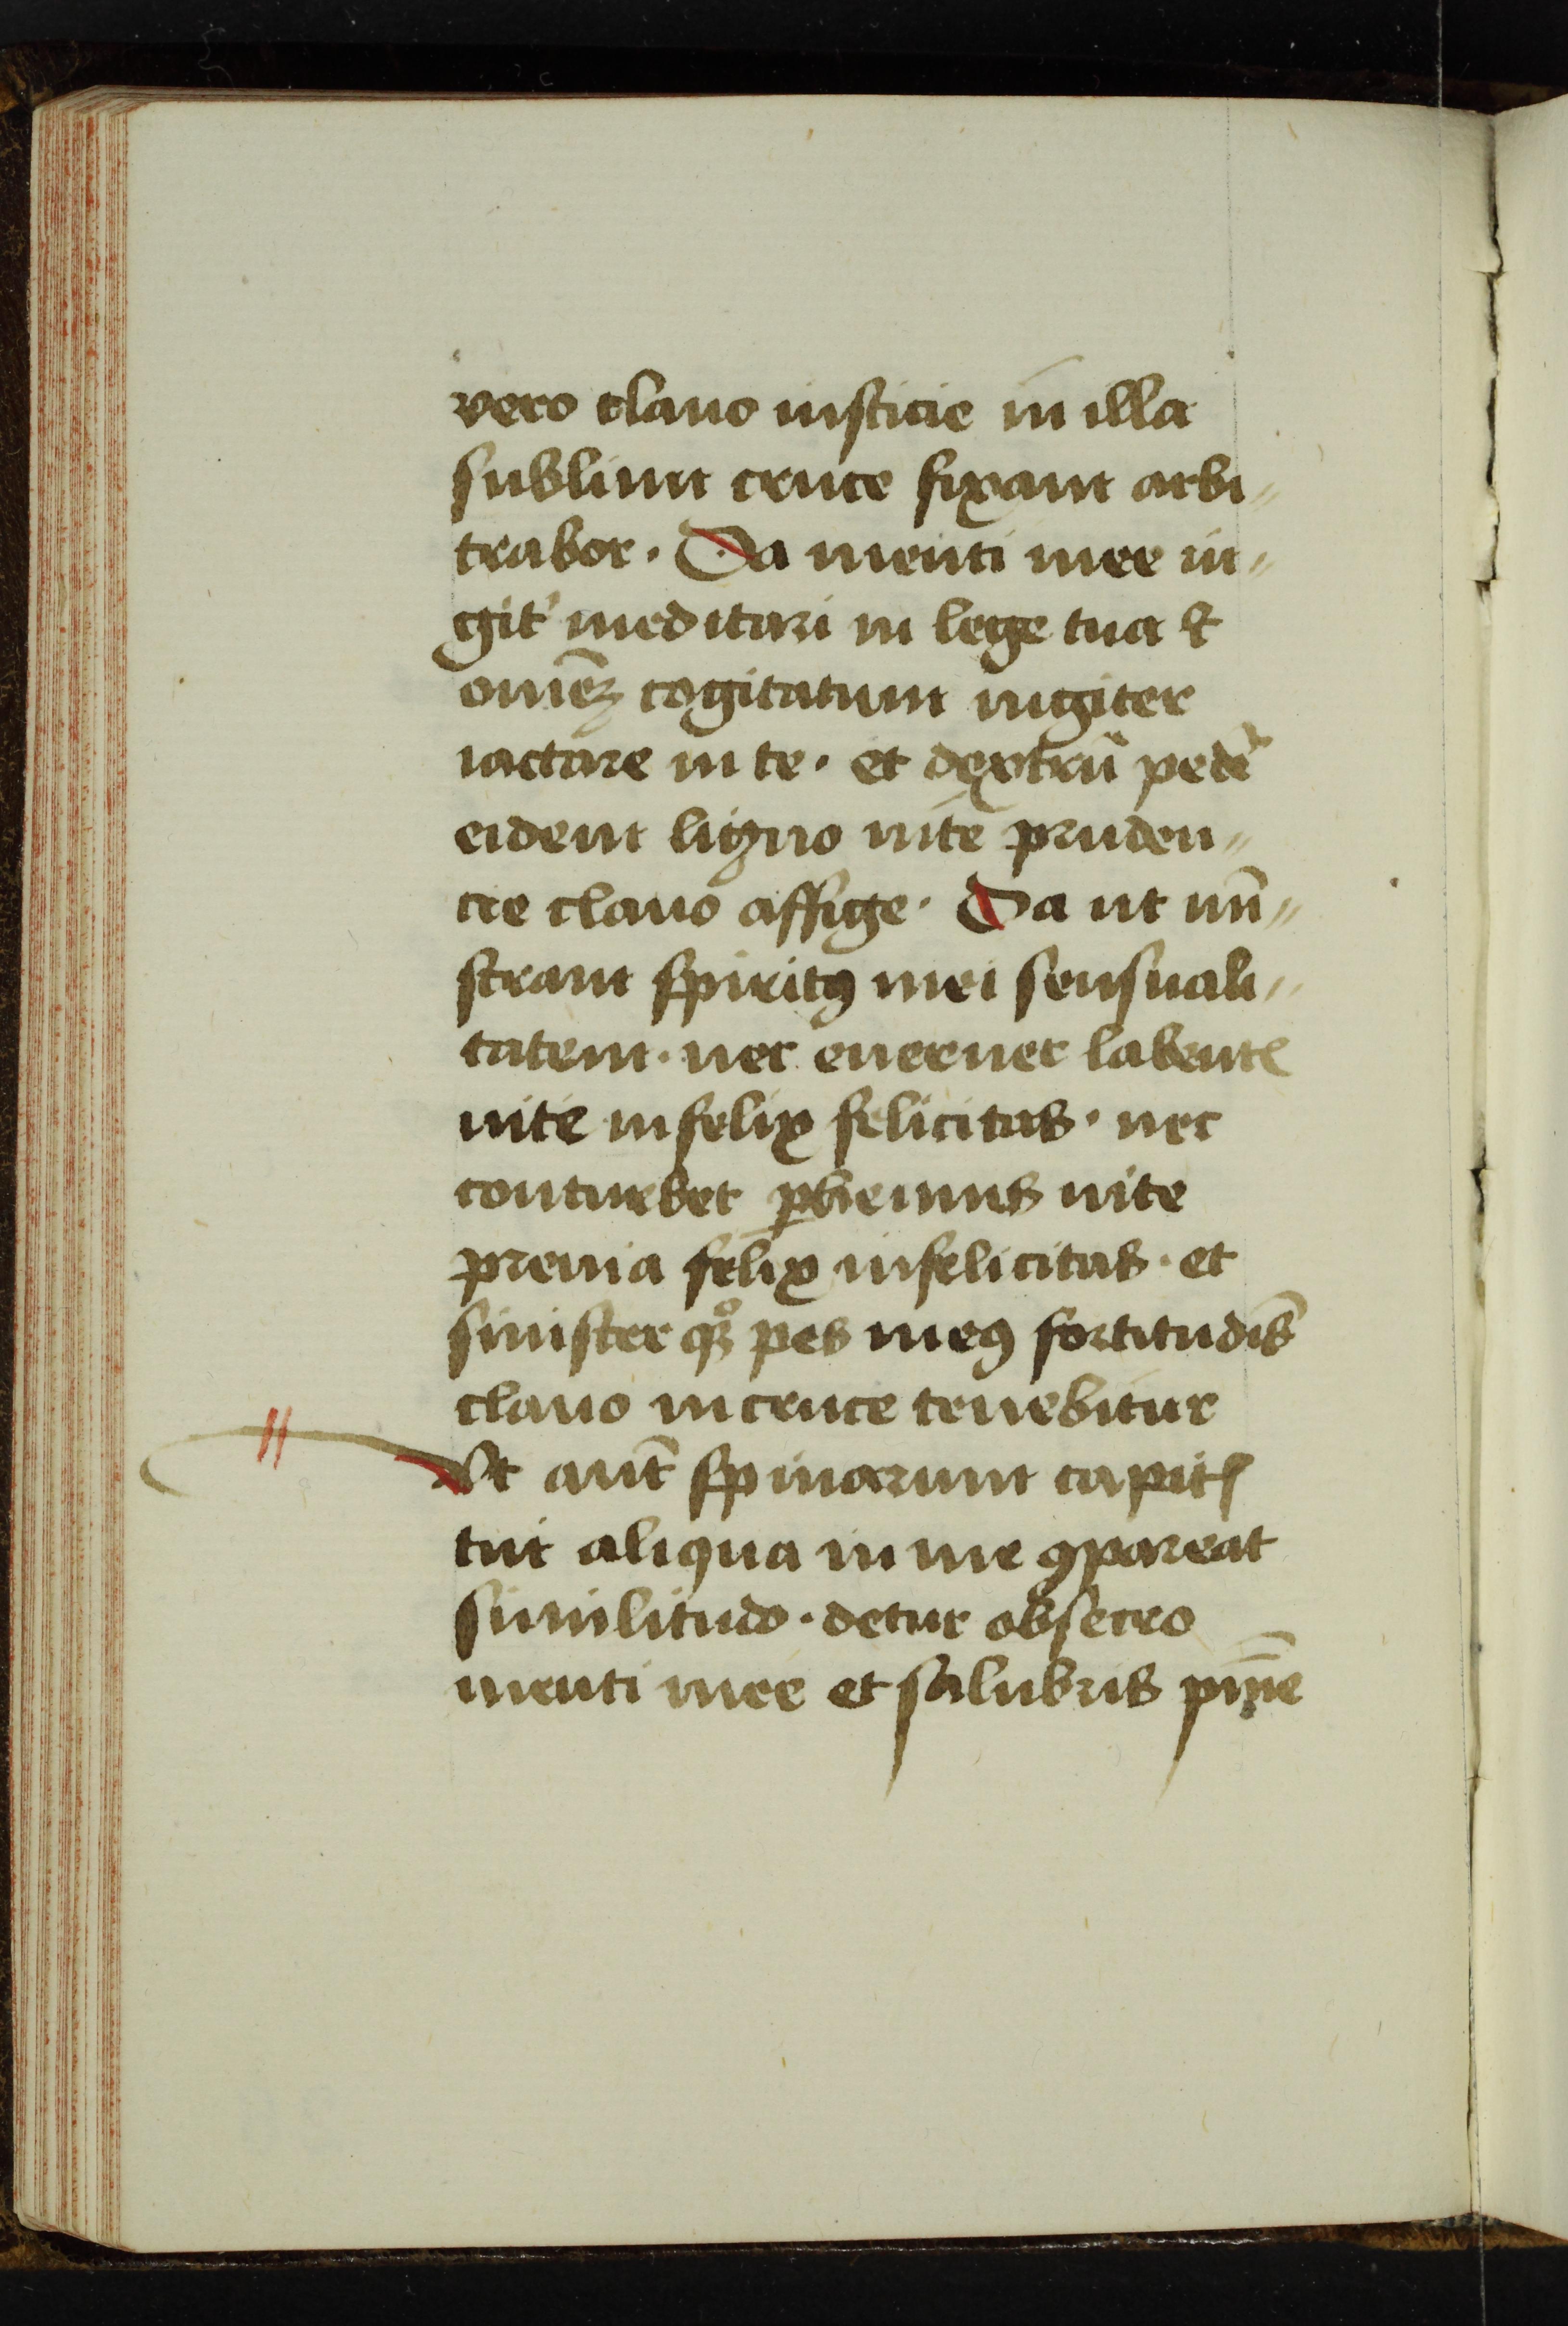 vero clauo iusticie in illa
sublimi cruce fixam arbi〃
trabor · Da menti mee iu〃
git᾽ meditari in lege tua ⁊
om̄eꝫ cogitatum iugiter
iactare in te · et dextrū pedē
eidem ligno uite pruden〃
cie clauo affige · Da ut mī〃
stram spiritꝰ mei sensuali〃
tatem · nec eneruet labentꝭ
uite infelix felicitas · nec
conturbet ꝑhennis uite
premia felix infelicitas · et
sinister qͦꝫ pes meꝰ fortitudīs
clauo in cruce tenebitur
Vt aūt spinarum capitꝭ
tui aliqua in me ꝯpareat
similitudo · detur obsecro
menti mee et salubris pn̄ie